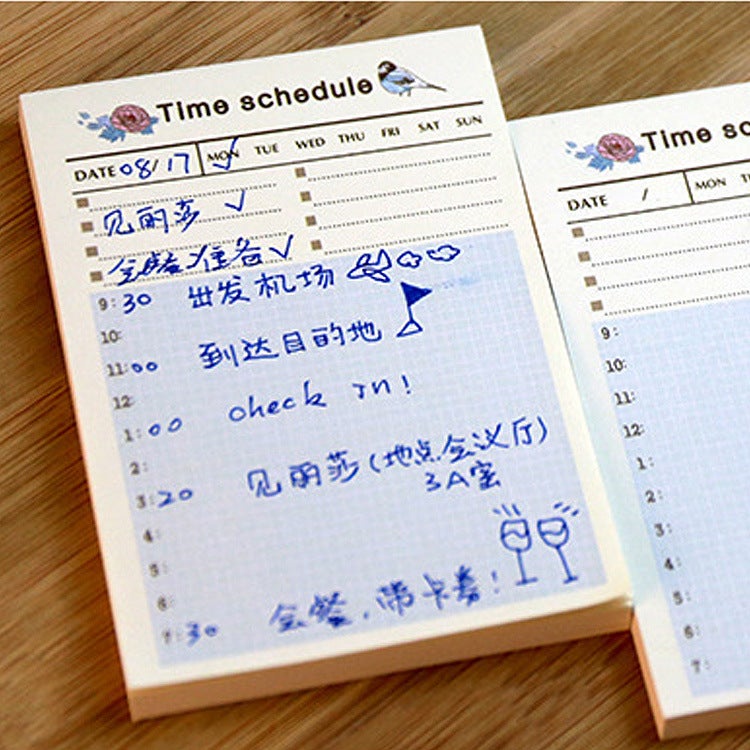 Time schedule
DATE 08/17 MON TUE WED THU FRI SAT SUN
见丽莎
会餐准备
9:30 出发机场
10:
11:00 到达目的地
12:
1:00 check In!
2:
3:20 见丽莎(地点会议厅)
3A室
4:
5:
6:
7:30 会餐,带卡券!
Time sc
DATE / MON
9:
10:
11:
12:
1:
2:
3:
4:
5:
6:
7: